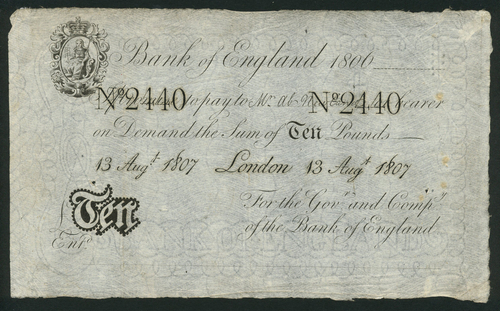 Bank of England 1806
No 2440 to pay to Mr. Ab. No 2440 Bearer
on Demand the Sum of Ten Pounds
13 Augt. 1807 London 13 Augt. 1807
For the Govr. and Compa.
£ Ten
of the Bank of England
Entd.